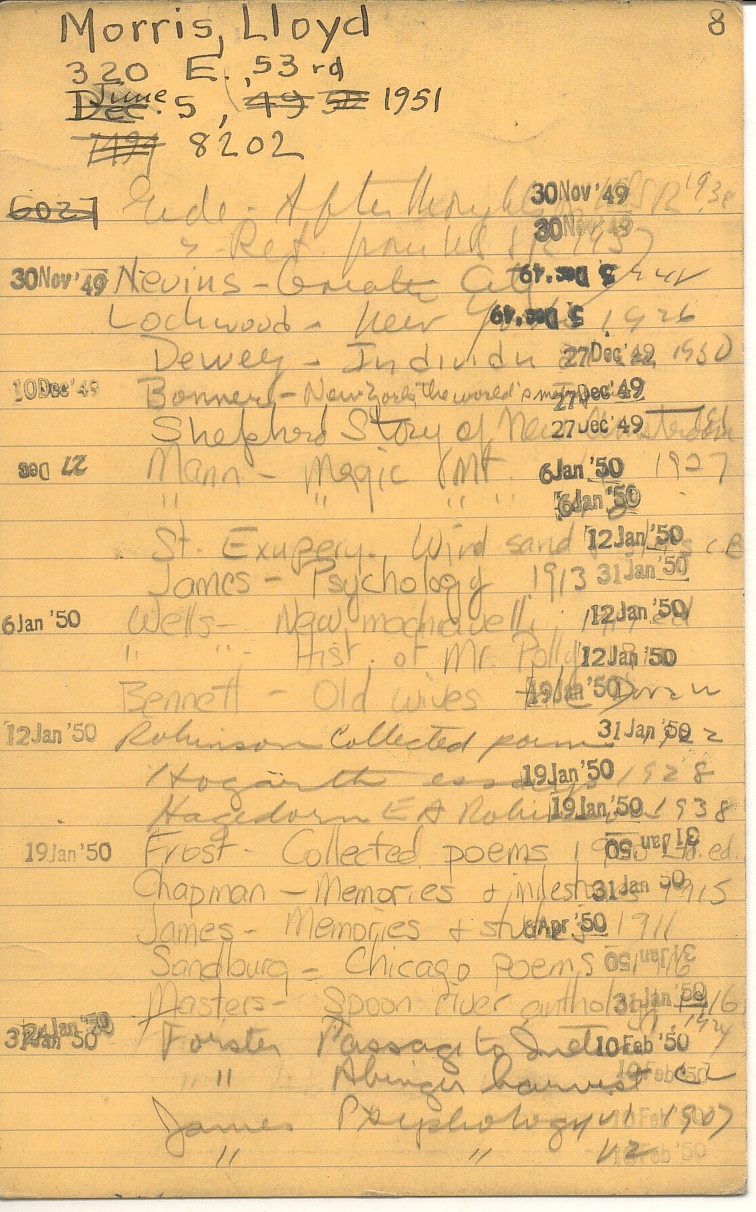 Morris, Lloyd 8
320 E. 53rd
Dec. June 5, 49 50 1951
8202
6027 Gide - After 30 Nov '49
Ret. from 30 Nov '49 1937
30 Nov '49 Nevins - Greater City 5 Dec. '49
Lockwood - New 5 Dec. '49 1926
Dewey - Individu 27 Dec '49 1930
10 Dec '49 Bonner - New York the world's met 27 Dec '49
Shepherd Story of New Amsterdam 27 Dec '49
27 Dec Mann - Magic Mt 6 Jan '50 1927
" " " " 6 Jan '50
St. Exupery. Wind sand 12 Jan '50
James - Psychology 1913 31 Jan '50
6 Jan '50 Wells - New machiavelli 12 Jan '50
" " - Hist. of Mr. Polly 12 Jan '50
Bennett - Old wives 19 Jan '50
12 Jan '50 Robinson Collected poem 31 Jan '50 1922
Hogarth essays 19 Jan '50 1928
Hagedorn E A Robinson 19 Jan '50 1938
19 Jan '50 Frost - Collected poems 31 Jan '50 ed.
Chapman - Memories & milestones 31 Jan '50 1915
James - Memories & studies 6 Apr '50 1911
Sandburg - Chicago poems 31 Jan '50 1916
Masters - Spoon river anthology 31 Jan '50 1916
31 Jan '50 Forster Passage to India 10 Feb '50
" Abinger harvest 10 Feb '50
James Psychology v1 10 Feb '50 1907
" " v2 10 Feb '50